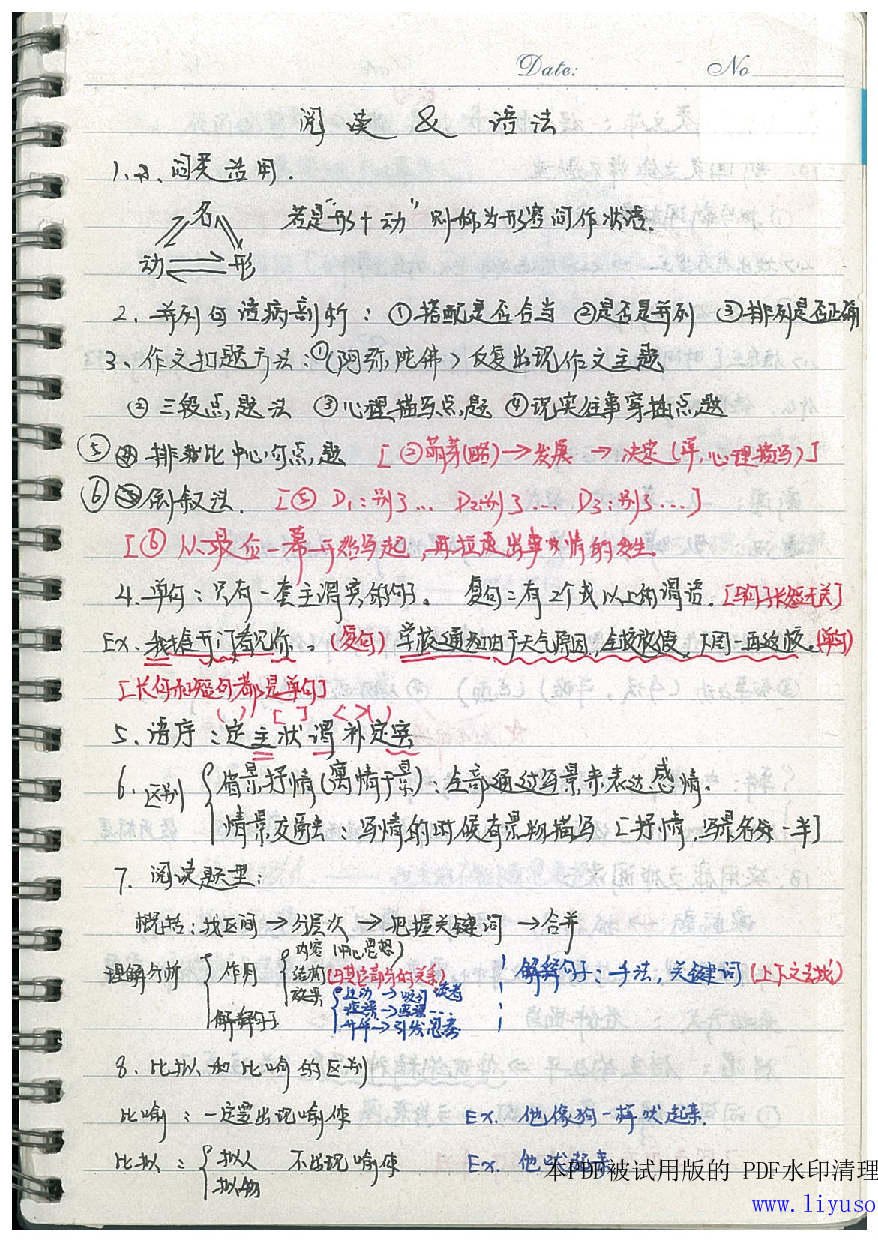 Date: No
阅读 & 语法
1、词类活用.
名
若是"形+动"则称为形容词作状语.
动 形
2. 并列句语病剖析：①搭配是否合当 ②是否是并列 ③排列是否正确
3、作文扣题方法：①(阿弥陀佛) 反复出现作文主题
② 三段点题法 ③心理描写点题 ④现实往事穿插点题
⑤ 排比中心句点题 [②萌芽(略)→发展→决定(详,心理描写)]
⑥ 倒叙法. [⑤ D1:别3... D2:别3... D3:别3...]
[⑥ 从最后一幕开始写起,再拉反出事情的发生
4. 单句：只有一套主谓宾的句子。 复句：有2个或以上的谓语. [与句子长短无关]
Ex. 我推开门看见你。(复句) 学校通知由于天气原因,全校放假,下周一再返校。(单句)
[长句和短句都是单句]
( ) [ ] < > ( )
5、语序：定主状谓补定宾
6. 区别 借景抒情(寓情于景)：全部通过写景来表达感情.
情景交融：写情的时候有景物描写 [抒情,写景各分一半]
7. 阅读题型：
概括：找区间→分层次→把握关键词→合并
理解分析 作用 内容 (中心思想)
结构 (与其它部分的关系)
效果 生动→吸引读者
解释句子
解释句子：手法,关键词 (上下文去找)
8. 比拟和比喻的区别
比喻：一定要出现喻体 Ex. 他像狗一样吠起来.
比拟： 拟人 不出现喻体 Ex. 他吠起来
拟物
本PDF被试用版的 PDF水印清理
www.liyuso